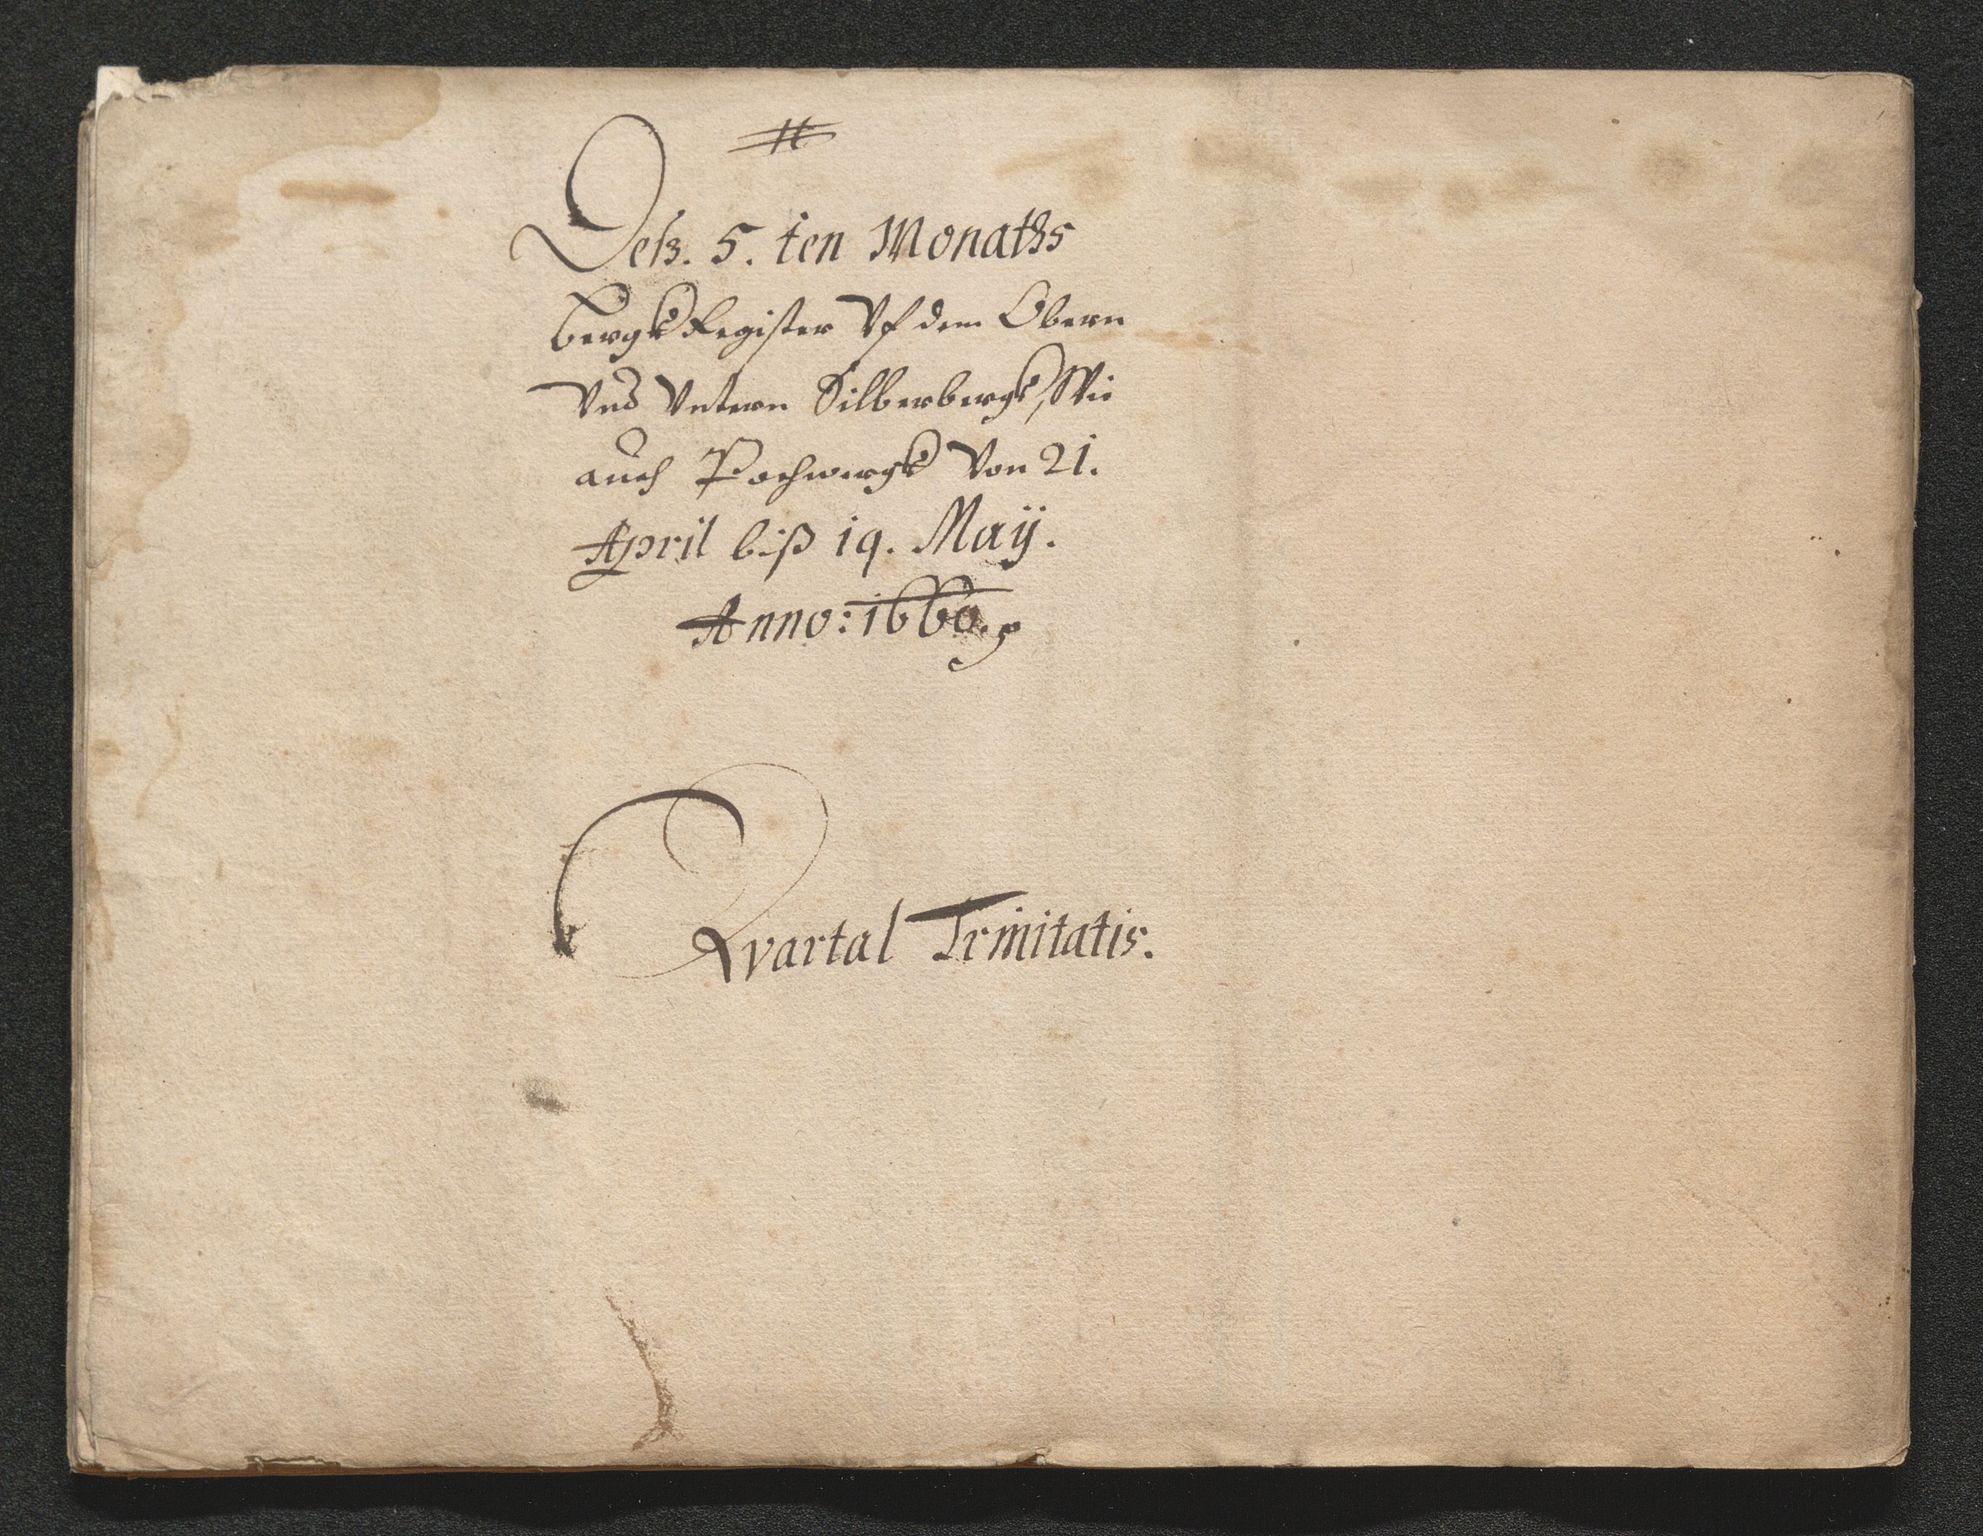 Deß. 5. ten Monaths
Bergk Register Vf dem Obern
Vnd Vntern Silberbergk, Wie
auch Pochwergk Von 21.
April biß 19. May.
Anno: 1660.
Qvartal Trinitatis.